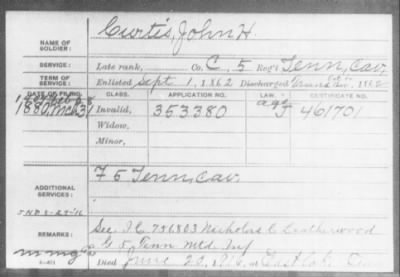 NAME OF SOLDIER: Curtis, John H.
SERVICE: Late rank, Co. C, 5 Reg't Tenn, Cav,
TERM OF SERVICE: Enlisted Sept 1, 1862 Discharged
DATE OF FILING. CLASS. APPLICATION NO. LAW. CERTIFICATE NO.
1880, Mch 31 Invalid, 353380 461701
Widow,
Minor,
ADDITIONAL SERVICES: F 5 Tenn, Cav,
REMARKS: See I.C. 756803 Nicholas C. Leatherwood
G 5, Tenn Mtd Inf
Died June 20, 1916, at